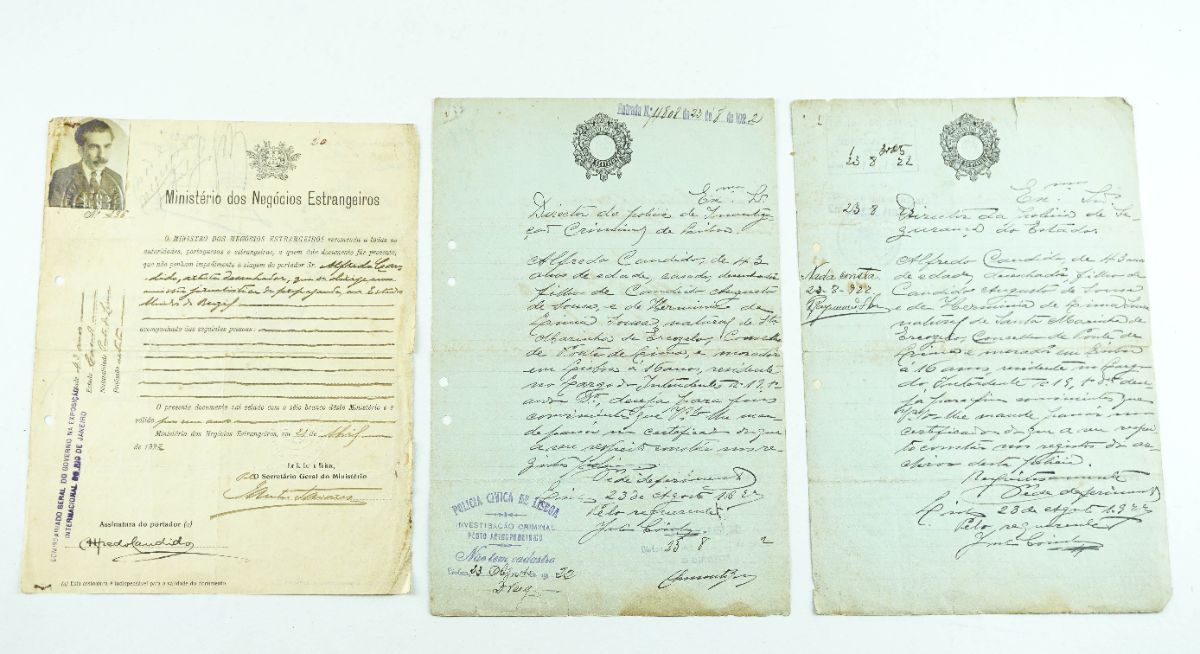 Nº 236
20
Ministério dos Negócios Estrangeiros
O MINISTRO DOS NEGÓCIOS ESTRANGEIROS recomenda a todas as
autoridades, portuguesas e estrangeiras, a quem êste documento fôr presente,
que não ponham impedimento à viagem do portador Sr. Alfredo Can
dido, artista desenhador, que se dirige em
missão jornalistica de propaganda, aos Estados
Unidos do Brazil
acompanhado das seguintes pessoas:
O presente documento vai selado com o sêlo branco dêste Ministério e é
válido por um ano
Ministério dos Negócios Estrangeiros, em 21 de Abril
de 1922
Secretário Geral do Ministério
Assinatura do portador (a)
Alfredo Candido
(a) Esta assinatura é indispensável para a validade do documento.
Idade 43 anos
Estado Casado
Naturalidade Ponte do Lima
Profissão
COMISSARIADO GERAL DO GOVERNO NA EXPOSIÇÃO
INTERNACIONAL DO RIO DE JANEIRO
Entrada N.º 11808 de 23 de 8 de 1922
Exmo Sr.
Director da policia de Investiga
ção Criminal de Lisboa
Alfredo Candido, de 43
anos de edade, casado, desenhador
filho de Candido Augusto
de Sousa, e de Herminia de
Lima Sousa, natural de Sta
Marinha de Arcozelo, Concelho
de Ponte de Lima, e morador
em Lisboa à 16 anos, residente
no Largo do Intendente n.º 19, 1º
andar Dt, deseja para fins
convinientes que V. Ex. lhe man
de passar no certificado do que
a seu respeito constar nos re
gistos
Pede deferimento
Lisboa 23 de Agosto 1922
Pelo requerente
POLICIA CIVICA DE LISBOA
INVESTIGAÇÃO CRIMINAL
POSTO ANTROPOMETRICO
Não tem cadastro
Lisboa 23 Agosto de 1922
23 8 22
23 8
Nada consta
23-8-922
Exmo Snr
Director da Policia de Se
gurança do Estado
Alfredo Candido, de 43 anos
de edade, desenhador, filho de
Candido Augusto de Sousa
e de Herminia de Lima Sousa
natural de Santa Marinha de
Arcozelo, Concelho de Ponte de
Lima e morador em Lisboa
à 16 anos residente no Largo
do Intendente n.º 19, 1º Dt dese
ja para fins convinientes que
V. Ex. lhe mande passar um
certificado do que a seu respei
to constar nos registos do ar
chivo desta policia.
Respeitosamente
Pede deferimento
Lisboa 23 de Agosto 1922
Pelo requerente